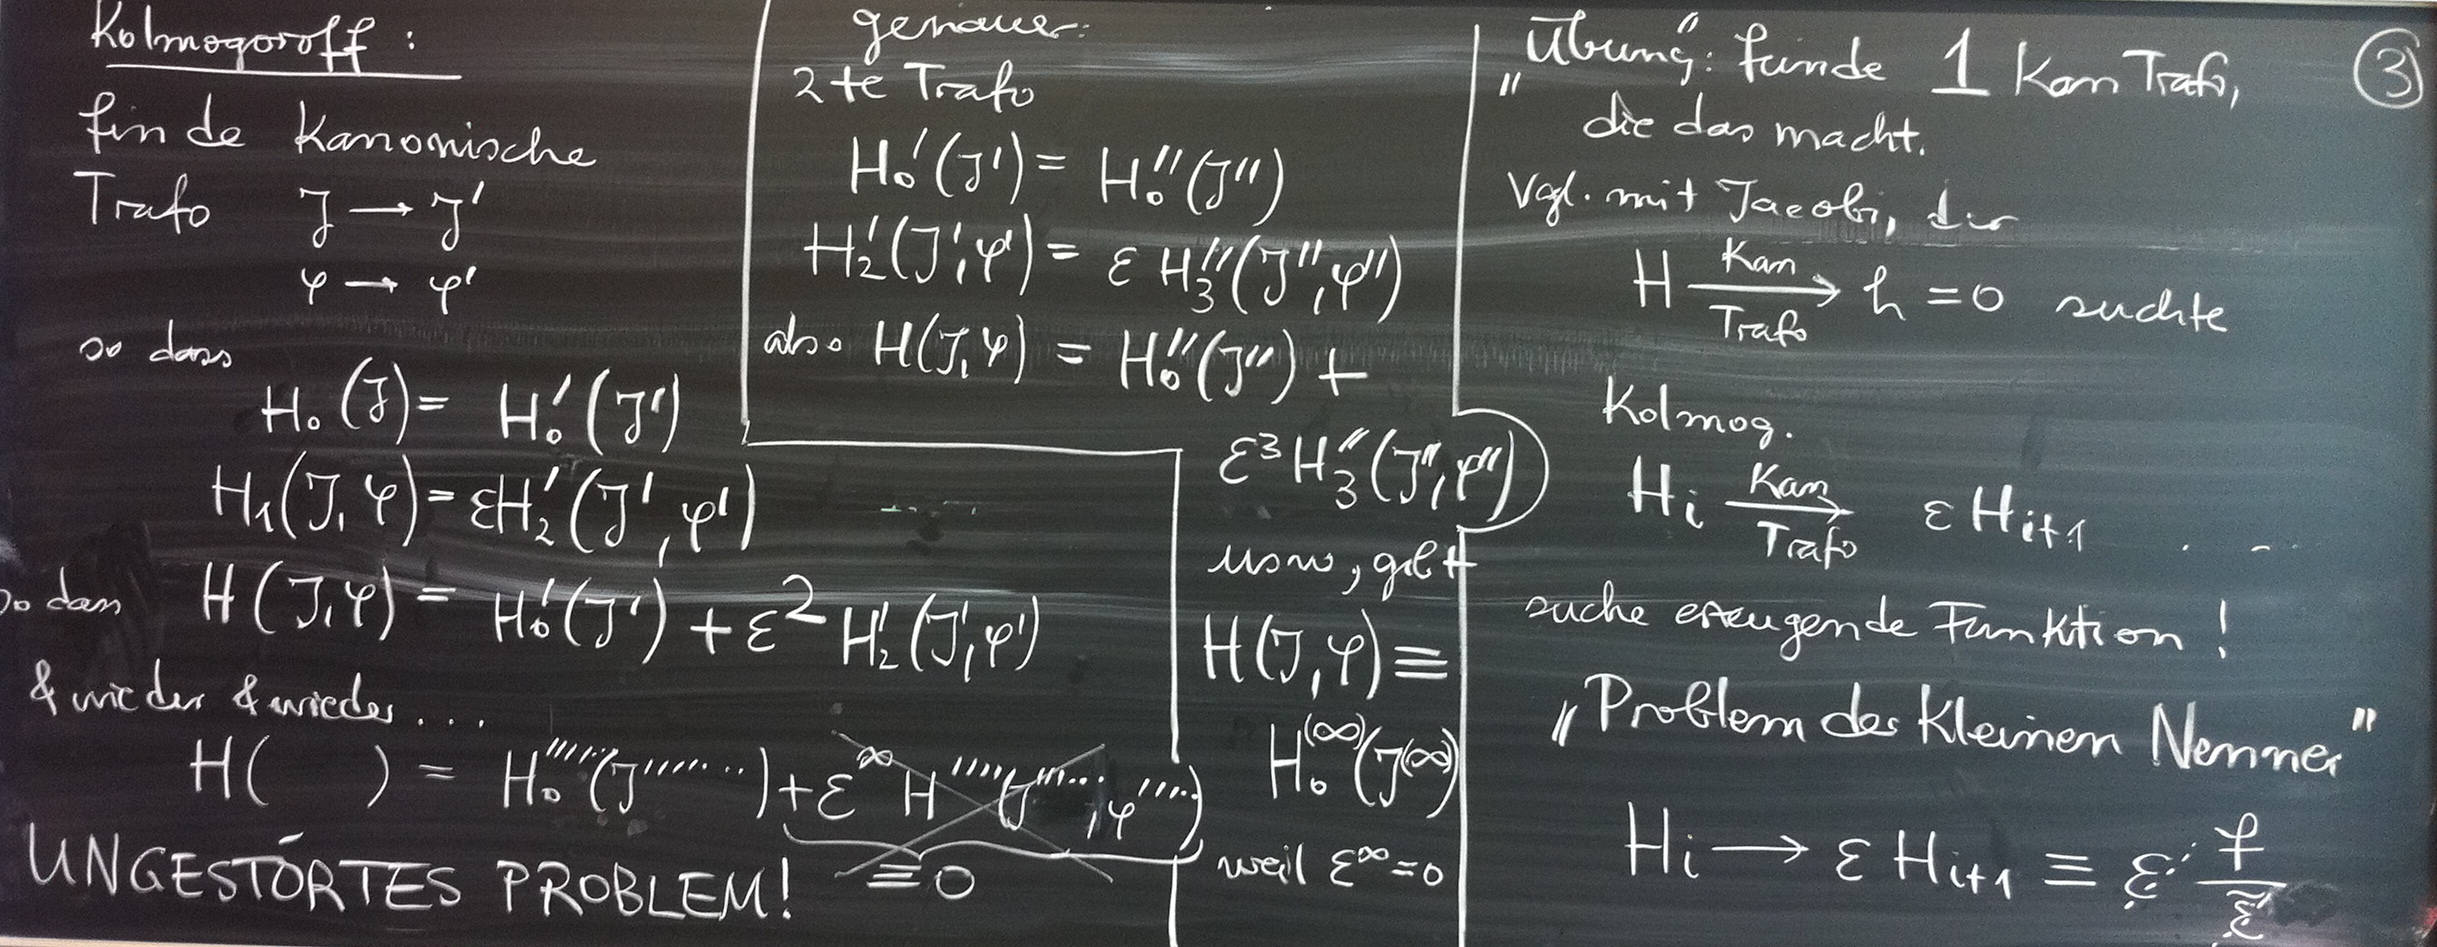 Kolmogoroff :
finde kanonische
Trafo J → J'
φ → φ'
so dass
H₀(J) = H₀'(J')
H₁(J, φ) = εH₂'(J', φ')
so dass H(J, φ) = H₀'(J') + ε² H₂'(J', φ')
& wieder & wieder ...
H( ) = H₀'''''(J''''''...) + ε^∞ H''''(J''''..., φ''''..)
UNGESTÖRTES PROBLEM! ≡ 0
genauer:
2te Trafo
H₀'(J') = H₀''(J'')
H₂'(J', φ') = ε H₃''(J'', φ'')
also H(J, φ) = H₀''(J'') +
ε³ H₃''(J'', φ'')
usw, gibt
H(J, φ) ≡
H₀^(∞)(J^(∞))
weil ε^∞ = 0
"Übung": finde 1 Kan Trafo, ③
die das macht.
Vgl. mit Jacobi, der
H Kan Trafo → h = 0 suchte
Kolmog.
H_i Kan Trafo → ε H_{i+1} . . .
suche erzeugende Funktion !
„Problem der kleinen Nenner"
H_i → ε H_{i+1} ≡ ε · f/ε̃